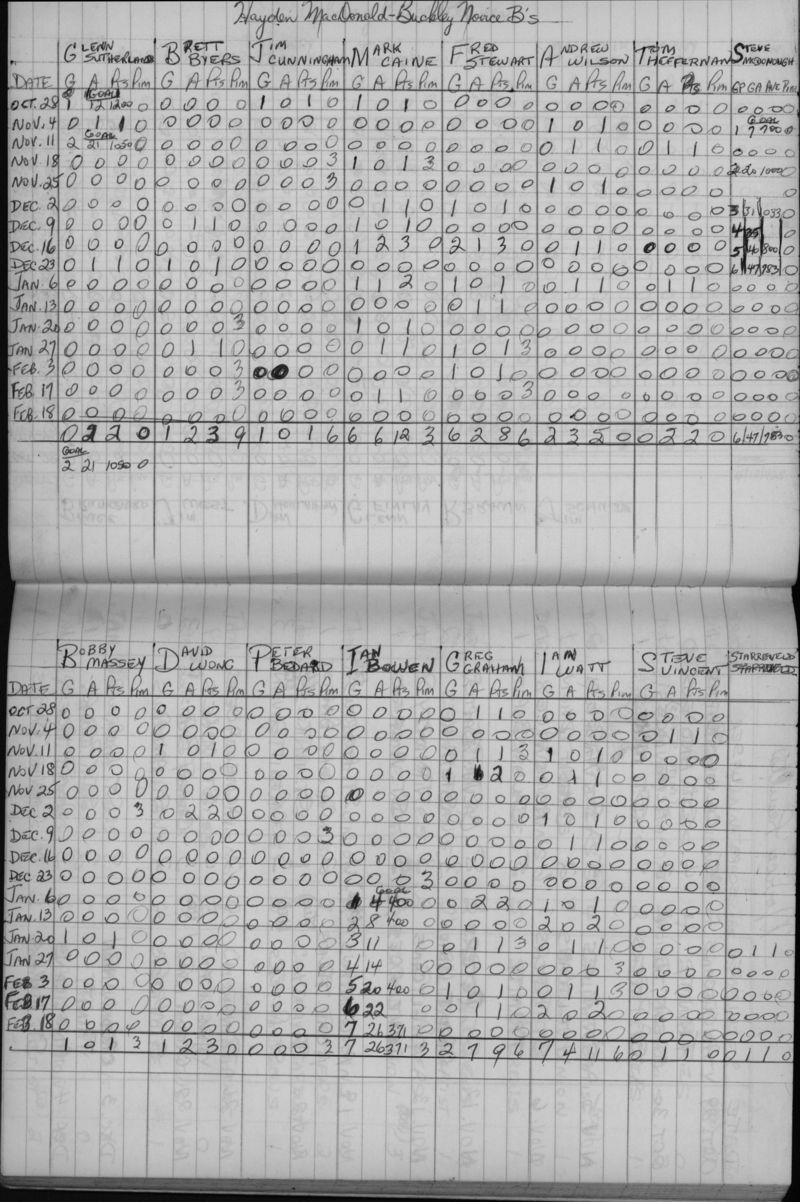 Hayden MacDonald-Buckley Novice B's
GLENN SUTHERLAND BRETT BYERS JIM CUNNINGHAM MARK CAINE FRED STEWART ANDREW WILSON TOM HEFFERNAN STEVE MCDONOUGH
DATE G A Pts Pim G A Pts Pim G A Pts Pim G A Pts Pim G A Pts Pim G A Pts Pim G A Pts Pim GP GA AVE Pim
GOAL
OCT. 28 1 12 1200 0 0 0 0 0 1 0 1 0 1 0 1 0 0 0 0 0 0 0 0 0 0 0 0 0 0 0 0
GOAL
NOV. 4 0 1 1 0 0 0 0 0 0 0 0 0 0 0 0 0 0 0 0 0 1 0 1 0 0 0 0 0 1 7 700 0
GOAL
NOV. 11 2 21 1050 0 0 0 0 0 0 0 0 0 0 0 0 0 0 0 0 0 0 1 1 0 0 1 1 0 0 0 0 0
NOV. 18 0 0 0 0 0 0 0 0 0 0 0 3 1 0 1 3 0 0 0 0 0 0 0 0 0 0 0 0 2 20 1000
NOV. 25 0 0 0 0 0 0 0 0 0 0 0 3 0 0 0 0 0 0 0 0 1 0 1 0 0 0 0 0 0
DEC. 2 0 0 0 0 0 0 0 0 0 0 0 0 0 1 1 0 1 0 1 0 0 0 0 0 0 0 0 0 3 31 1033 0
DEC. 9 0 0 0 0 0 1 1 0 0 0 0 0 1 0 1 0 0 0 0 0 0 0 0 0 0 0 0 0 4 35 0
DEC. 16 0 0 0 0 0 0 0 0 0 0 0 0 1 2 3 0 2 1 3 0 0 1 1 0 0 0 0 0 5 40 800 0
DEC 23 0 1 1 0 1 0 1 0 0 0 0 0 0 0 0 0 0 0 0 0 0 0 0 0 0 0 0 0 6 47 783 0
JAN. 6 0 0 0 0 0 0 0 0 0 0 0 0 1 1 2 0 1 0 1 0 0 1 1 0 0 1 1 0 0 0 0 0
JAN. 13 0 0 0 0 0 0 0 0 0 0 0 0 0 0 0 0 0 1 1 0 0 0 0 0 0 0 0 0 0 0 0 0
JAN. 20 0 0 0 0 0 0 0 3 0 0 0 0 1 0 1 0 0 0 0 0 0 0 0 0 0 0 0 0 0 0 0 0
JAN 27 0 0 0 0 0 1 1 0 0 0 0 0 0 1 1 0 1 0 1 3 0 0 0 0 0 0 0 0 0 0 0 0
FEB. 3 0 0 0 0 0 0 0 3 0 0 0 0 0 0 0 0 1 0 1 0 0 0 0 0 0 0 0 0 0 0 0 0
FEB 17 0 0 0 0 0 0 0 3 0 0 0 0 0 1 1 0 0 0 0 3 0 0 0 0 0 0 0 0 0 0 0 0
FEB. 18 0 0 0 0 0 0 0 0 0 0 0 0 0 0 0 0 0 0 0 0 0 0 0 0 0 0 0 0 0 0 0 0
0 2 2 0 1 2 3 9 1 0 1 6 6 6 12 3 6 2 8 6 2 3 5 0 0 2 2 0 6 47 783 0
GOAL
2 21 1050 0
BOBBY MASSEY DAVID WONG PETER BEDARD IAN BOWEN GREG GRAHAM IAN WATT STEVE VINCENT STARREVELD
DATE G A Pts Pim G A Pts Pim G A Pts Pim G A Pts Pim G A Pts Pim G A Pts Pim G A Pts Pim
OCT 28 0 0 0 0 0 0 0 0 0 0 0 0 0 0 0 0 0 1 1 0 0 0 0 0 0 0 0 0
NOV. 4 0 0 0 0 0 0 0 0 0 0 0 0 0 0 0 0 0 0 0 0 0 0 0 0 0 1 1 0
NOV. 11 0 0 0 0 1 0 1 0 0 0 0 0 0 0 0 0 0 1 1 3 1 0 1 0 0 0 0 0
NOV 18 0 0 0 0 0 0 0 0 0 0 0 0 0 0 0 0 1 1 2 0 0 1 1 0 0 0 0 0
NOV 25 0 0 0 0 0 0 0 0 0 0 0 0 0 0 0 0 0 0 0 0 0 0 0 0 0 0 0 0
DEC 2 0 0 0 3 0 2 2 0 0 0 0 0 0 0 0 0 0 0 0 0 1 0 1 0 0 0 0 0
DEC. 9 0 0 0 0 0 0 0 0 0 0 0 3 0 0 0 0 0 0 0 0 0 1 1 0 0 0 0 0
DEC. 16 0 0 0 0 0 0 0 0 0 0 0 0 0 0 0 0 0 0 0 0 0 0 0 0 0 0 0 0
DEC 23 0 0 0 0 0 0 0 0 0 0 0 0 0 0 0 3 0 0 0 0 0 0 0 0 0 0 0 0
GOAL
JAN. 6 0 0 0 0 0 0 0 0 0 0 0 0 1 4 400 0 0 2 2 0 1 0 1 0 0 0 0 0
JAN. 13 0 0 0 0 0 0 0 0 0 0 0 0 2 8 400 0 0 0 0 0 2 0 2 0 0 0 0 0
JAN 20 1 0 1 0 0 0 0 0 0 0 0 0 3 11 0 0 1 1 3 0 1 1 0 0 0 0 0 0 1 1 0
JAN 27 0 0 0 0 0 0 0 0 0 0 0 0 4 14 0 0 0 0 0 0 0 0 3 0 0 0 0 0 0 0 0
FEB 3 0 0 0 0 0 0 0 0 0 0 0 0 5 20 400 0 1 0 1 0 0 1 1 3 0 0 0 0 0 0 0 0
FEB 17 0 0 0 0 0 0 0 0 0 0 0 0 6 22 0 0 1 1 0 2 0 2 0 0 0 0 0 0 0 0 0
FEB. 18 0 0 0 0 0 0 0 0 0 0 0 0 7 26 371 0 0 0 0 0 0 0 0 0 0 0 0 0 0 0 0 0
1 0 1 3 1 2 3 0 0 0 0 3 7 26 371 3 2 7 9 6 7 4 11 6 0 1 1 0 0 1 1 0